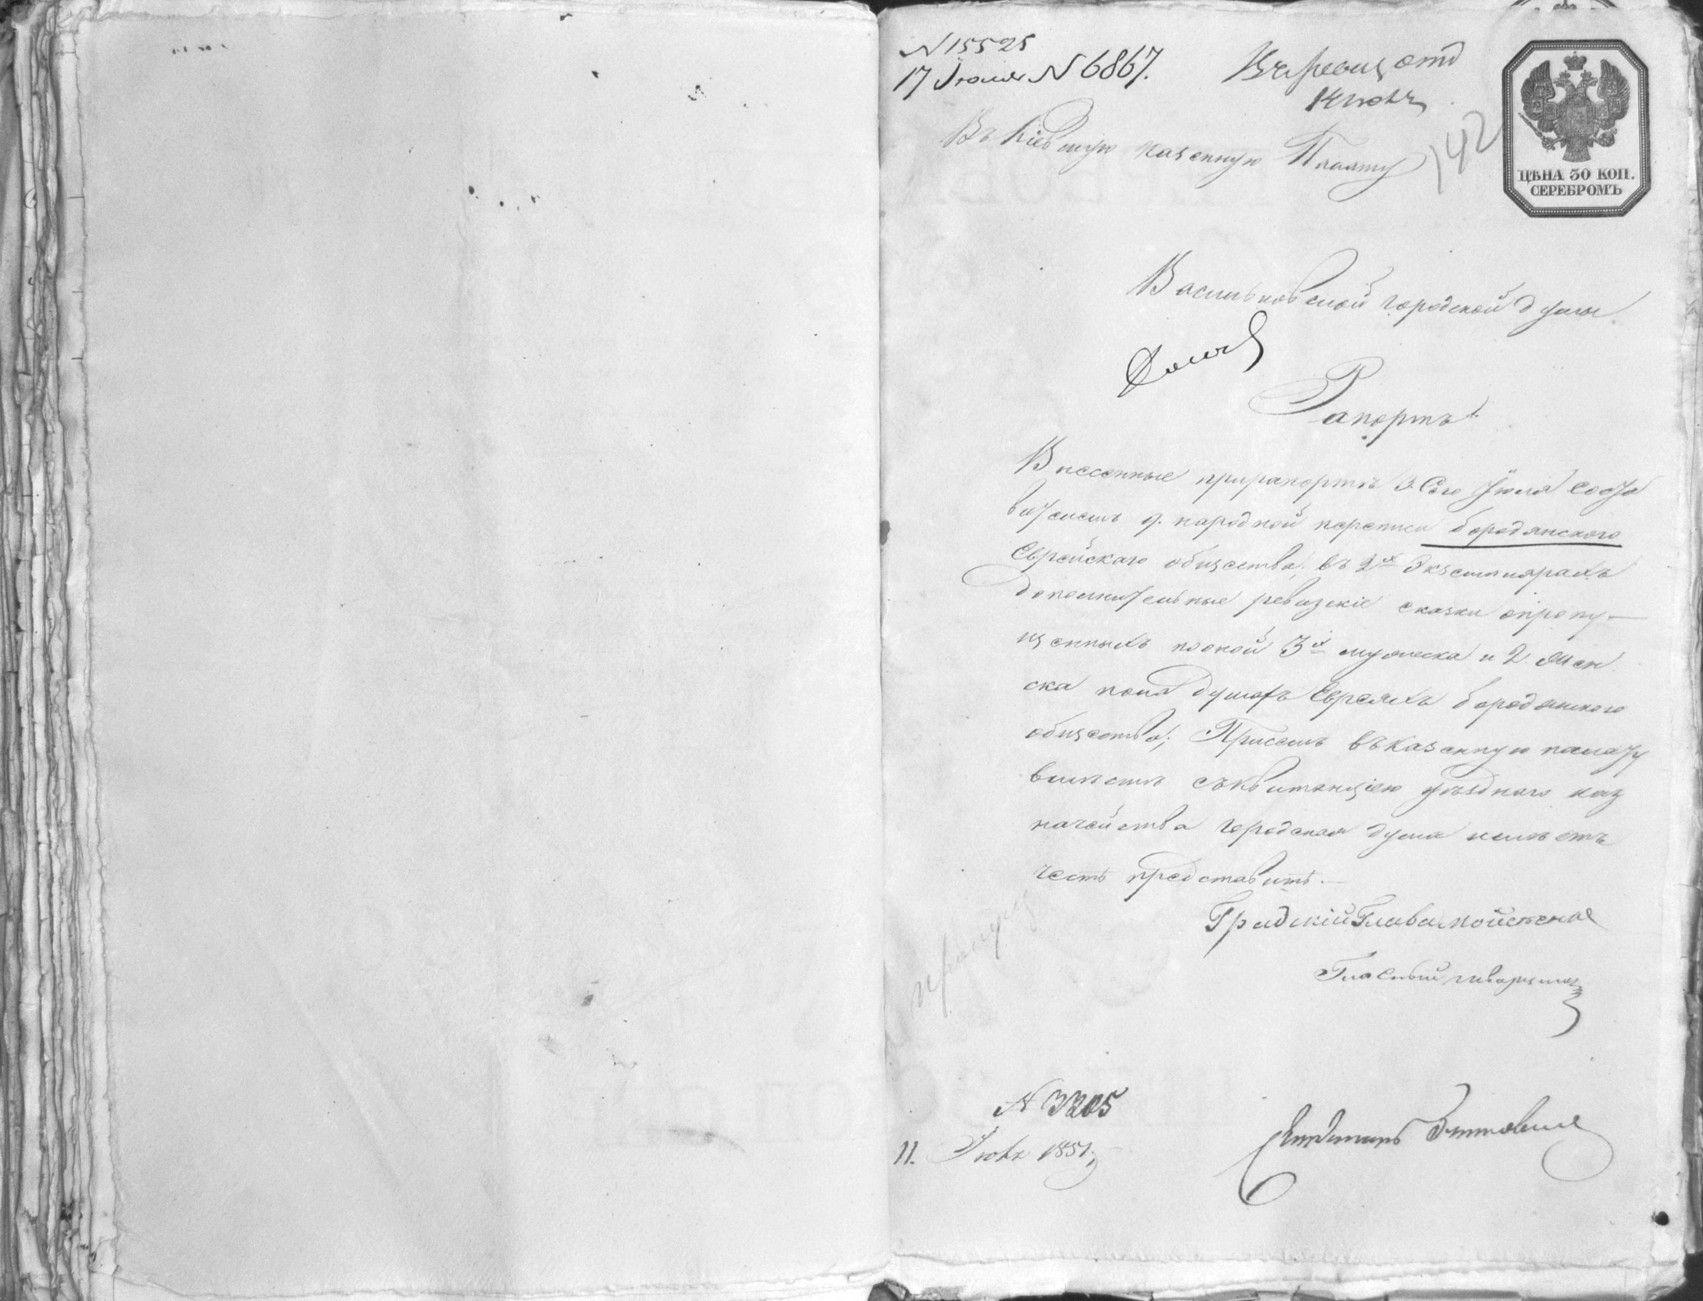 N 15525
17 Июля N 6867.
Въ ревиз отд
142
Въ Кіевскую казенную Палату
ЦѢНА 30 КОП.
СЕРЕБРОМЪ
Васильковской городской думы
Рапортъ
Внесенные при рапортѣ Июля
9. народной переписи бородянского
Еврейскаго общества, въ 2х Экземплярахъ
дополнительные ревизскіе сказки о пропу-
щенныхъ по оной 3х мужеска и 2 жен
ска пола душахъ Евреяхъ бородянского
общества; При семъ въ казенную палату
вмѣстѣ съ квитанціею уѣзднаго каз
начейства городская дума имѣетъ
честь представить.
Градскій Глава
Гласный
N 3205
11. Июля 1851,